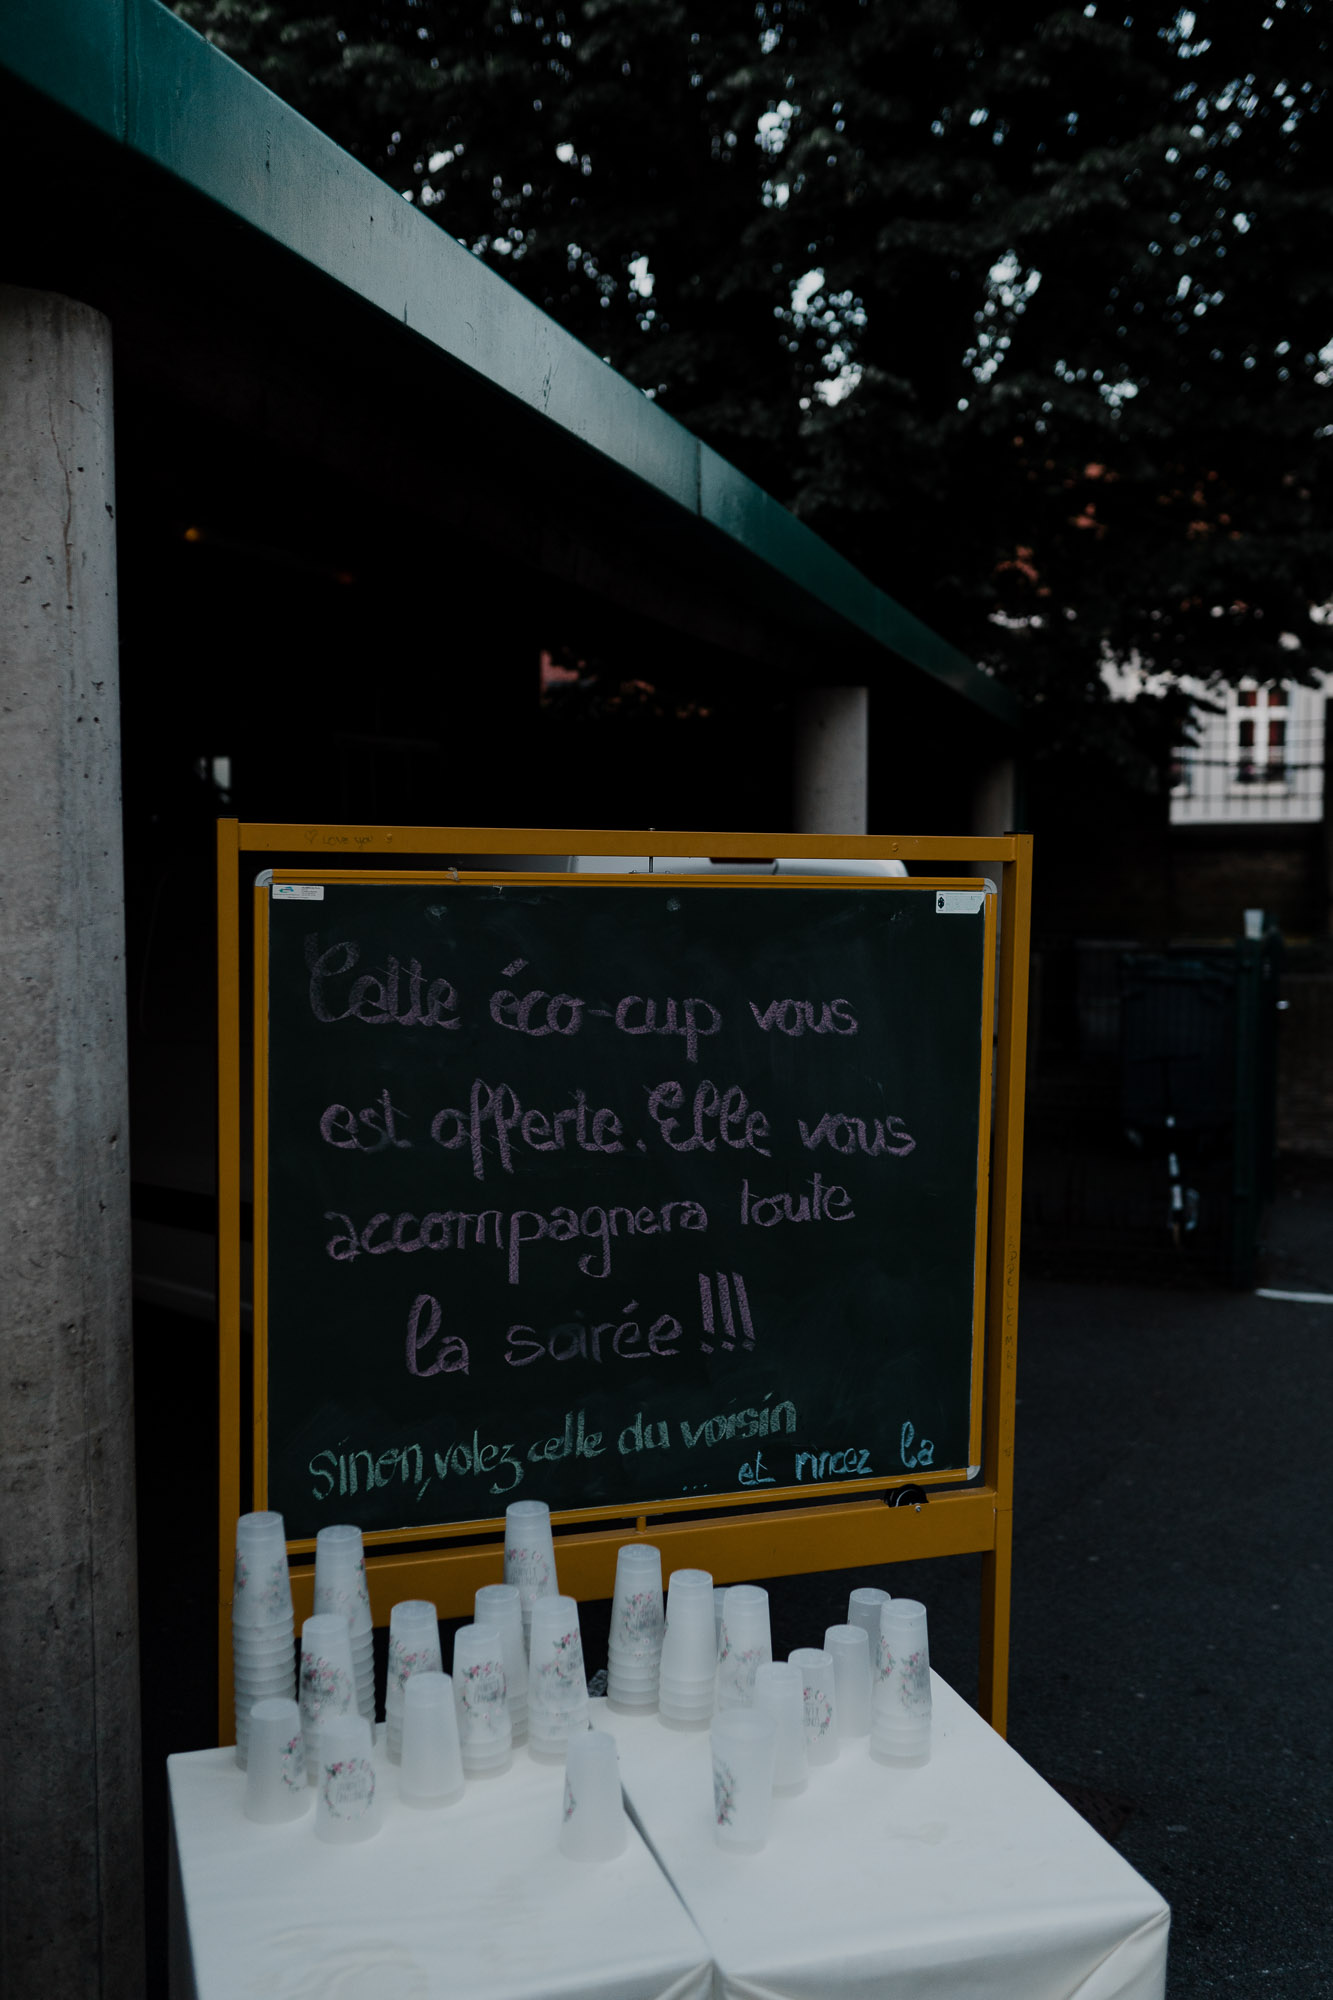 Love you
Cette éco-cup vous
est offerte. Elle vous
accompagnera toute
la soirée !!!
Sinon, volez celle du voisin
... et rincez la